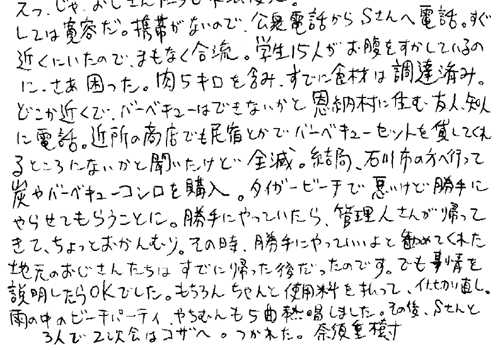 えっ、じゃ、おじさんたち
しては寛容だ。携帯がないので、公衆電話からSさんへ電話。すぐ
近くにいたので、まもなく合流。学生15人がお腹をすかしているの
に、さあ困った。肉5キロを含み、すでに食材は調達済み。
どこか近くで、バーベキューはできないかと恩納村に住む友人、知人
に電話。近所の商店でも民宿とかでバーベキューセットを貸してくれ
るところにないかと聞いたけど全滅。結局、石川市の方へ行って
炭やバーベキューコンロを購入。タイガービーチで悪いけど勝手に
やらせてもらうことに。勝手にやっていたら、管理人さんが帰って
きて、ちょっとおかんむり。その時、勝手にやっていいよと勧めてくれた
地元のおじさんたちはすでに帰った後だったのです。でも事情を
説明したらOKでした。もちろんちゃんと使用料を払って、仕切り直し。
雨の中のビーチパーティ、やちむんも5曲熱唱しました。その後、Sさんと
3人で2次会はコザへ。つかれた。奈須重樹